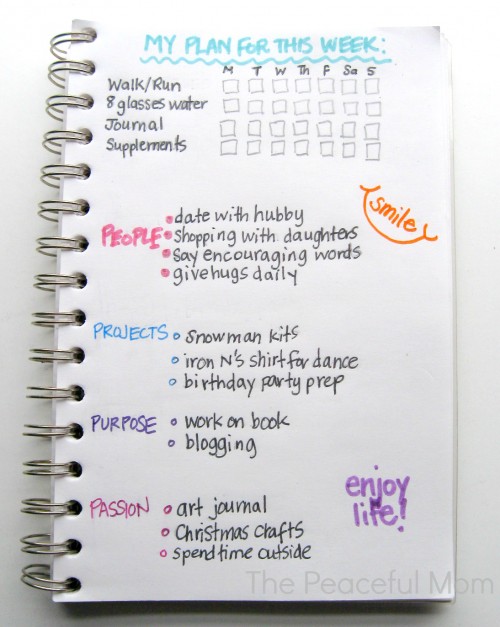 MY PLAN FOR THIS WEEK:
M T W Th F Sa S
Walk/Run
8 glasses water
Journal
Supplements
smile
PEOPLE
• date with hubby
• Shopping with daughters
• Say encouraging words
• give hugs daily
PROJECTS • snowman kits
• iron N's shirt for dance
• birthday party prep
PURPOSE • work on book
• blogging
enjoy
life!
PASSION • art journal
• Christmas crafts
• spend time outside
The Peaceful Mom